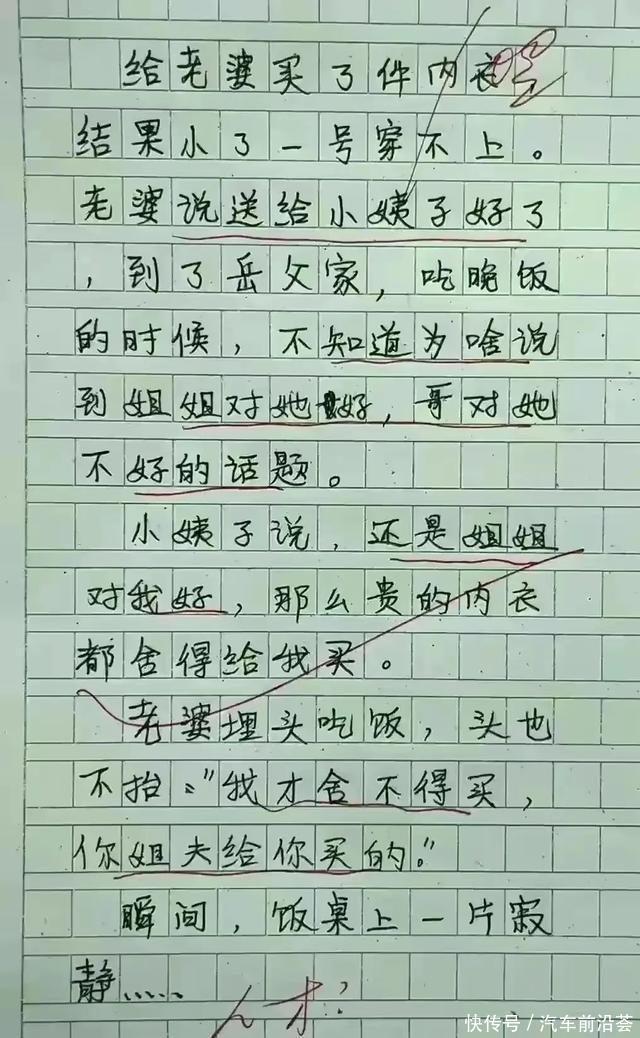 给老婆买了件内衣
结果小了一号穿不上。
老婆说送给小姨子好了
，到了岳父家，吃晚饭
的时候，不知道为啥说
到姐姐对她好，哥对她
不好的话题。
小姨子说，还是姐姐
对我好，那么贵的内衣
都舍得给我买。
老婆埋头吃饭，头也
不抬："我才舍不得买，
你姐夫给你买的。"
瞬间，饭桌上一片寂
静……
人才？
快传号／汽车前沿荟